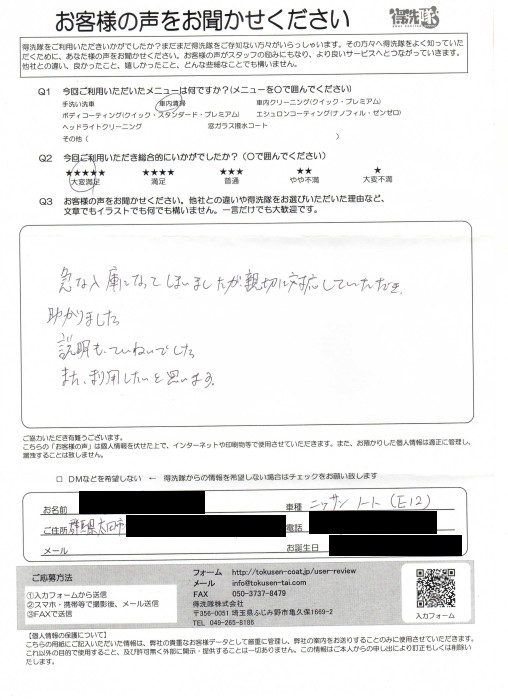 お客様の声をお聞かせください
得洗隊
得洗隊をご利用いただきいかがでしたか？まだまだ得洗隊をご存知ない方々がいらっしゃいます。その方々へ得洗隊をよく知っていた
だくために、あなた様の声をお聞かせください。お客様の声がスタッフの励みにもなり、より良いサービスへとつながっていきます。
他社との違い、良かったこと、嬉しかったこと、どんな些細なことでも構いません。
Q1 今回ご利用いただいたメニューは何ですか？(メニューを○で囲んでください)
手洗い洗車 車内清掃 車内クリーニング(クイック・プレミアム)
ボディコーティング(クイック・スタンダード・プレミアム) エシュロンコーティング(ナノフィル・ゼンゼロ)
ヘッドライトクリーニング 窓ガラス撥水コート
その他（ ）
Q2 今回ご利用いただき総合的にいかがでしたか？(○で囲んでください)
★★★★★ ★★★★ ★★★ ★★ ★
大変満足 満足 普通 やや不満 大変不満
Q3 お客様の声をお聞かせください。他社との違いや得洗隊をお選びいただいた理由など、
文章でもイラストでも何でも構いません。一言だけでも大歓迎です。
急な入庫になってしまいましたが、親切に対応していただき、
助かりました
説明も、ていねいでした
また、利用したいと思います。
ご協力いただき有難うございます。
こちらの「お客様の声」は個人情報を伏せた上で、インターネットや印刷物等で使用させていただきます。また、お預かりした個人情報は適正に管理し、
漏洩することは致しません。
□ DMなどを希望しない ← 得洗隊からの情報を希望しない場合はチェックをお願い致します
お名前 車種 ニッサン ノート (E12)
ご住所 群馬県太田市 電話
メール お誕生日
ご応募方法
①入力フォームから送信
②スマホ・携帯等で撮影後、メール送信
③FAXで送信
フォーム http://tokusen-coat.jp/user-review
メール info@tokusen-tai.com
FAX 050-3737-8479
得洗隊株式会社
〒356-0051 埼玉県ふじみ野市亀久保1669-2
TEL 049-265-6186
入力フォーム
【個人情報の保護について】
こちらの用紙にご記入いただいた情報は、弊社の貴重なお客様データとして厳重に管理し、弊社の案内をお送りすることのみに使用させていただきます。
これ以外の目的で使用すること、及び許可無く外部に開示・提供することは一切ありません。この情報はご本人からの申し出により訂正もしくは削除い
たします。